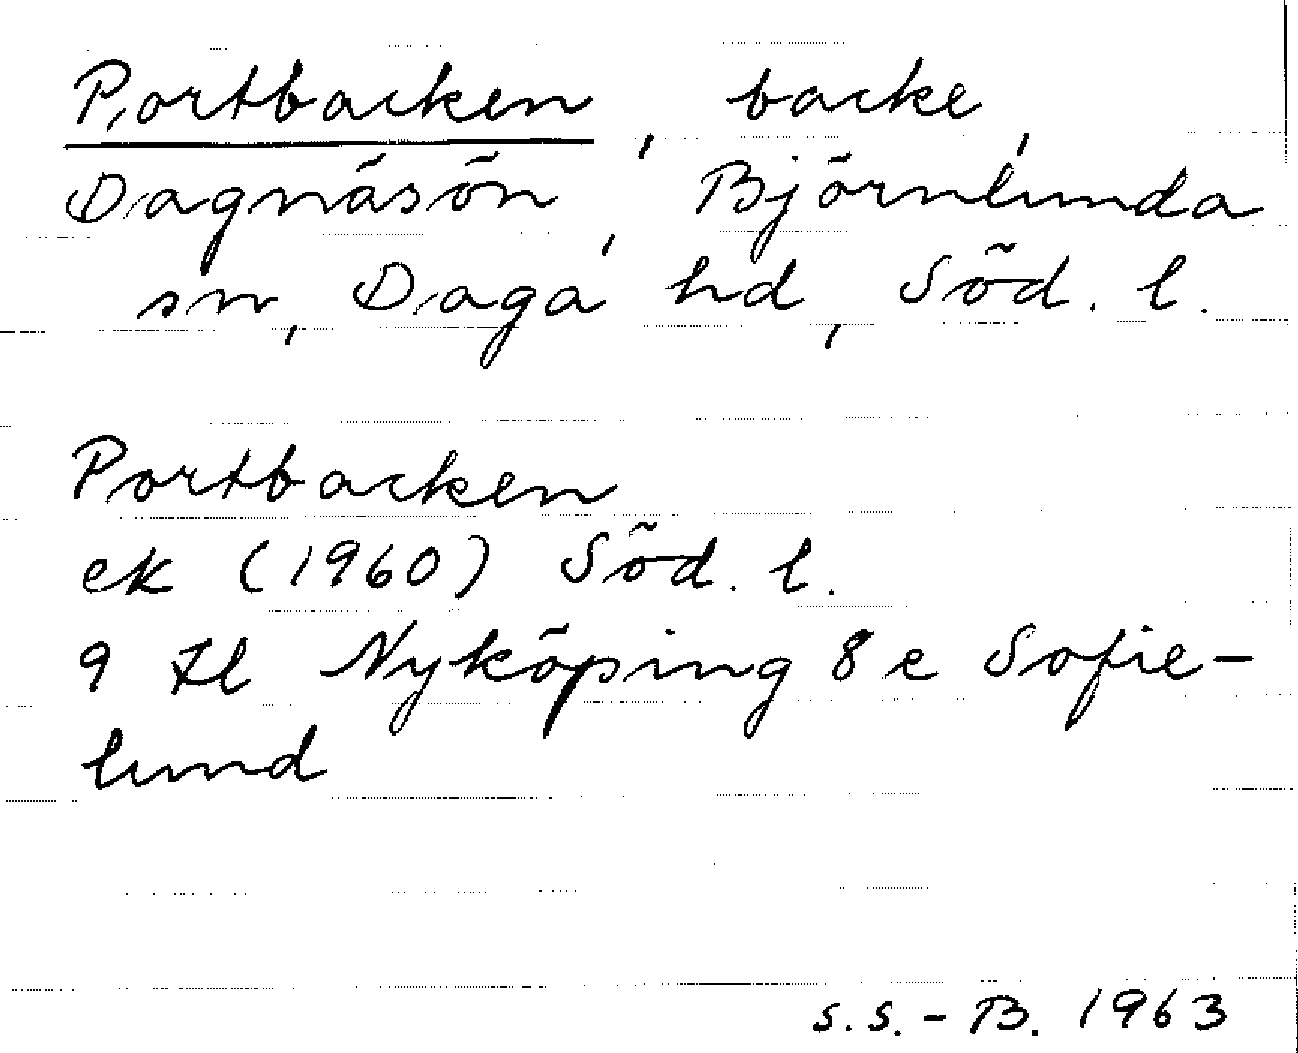 Portbacken, backe,
Dagnäsön, Björnlunda
sn, Daga hd, Söd. l.
Portbacken
ek (1960) Söd. l.
9 Il Nyköping 8 e Sofie-
lund
S.S.-B. 1963